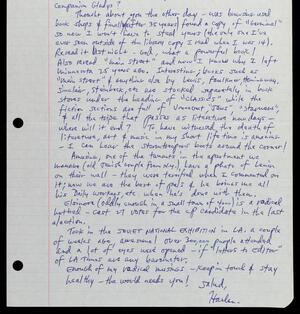 Companion Gladys?
Thought about you the other day - was
book shops & finally after 35 years found a copy of "Germinal"
so now I won't have to steal yours (the only one I've
ever seen outside of the library copy I read when I was 14).
Read it last nite - God, what a powerful book.
Also reread "Main Street" and now I know why I left
Minnesota 25 years ago. Interesting; books such as
"Main Street" & anything else by Lewis, Faulkner, Hemingway,
Sinclair, Steinbeck, etc are stocked separately in book
stores under the heading of "CLASSICS" while the
fiction sections are full of
& all the tripe that passes as literature now days -
where will it end? To have witnessed the death of
literature, art & music in my short lifetime is
- I can hear the around the corner!
Amusing, one of the tenants in the apartment we
manage (old couple from NY), have a photo of Lenin
on their wall - they were terrified when I commented on
it; now we are the best of pals & he brings me all
his Daily Workers, etc when he's done with them.
(oddly enough in a small town of) is a radical
hotbed - cast 27 votes for the CP candidate in the last
election.
Took in the SOVIET NATIONAL EXHIBITION in LA a couple
of weeks ago, awesome! Over 300,000 people attended
and a lot of eyes were opened - if "letters to Editor"
of LA Times are any barometer.
Enough of my radical musings - keep in touch & stay
healthy - the world needs you! Salud,
Harlen